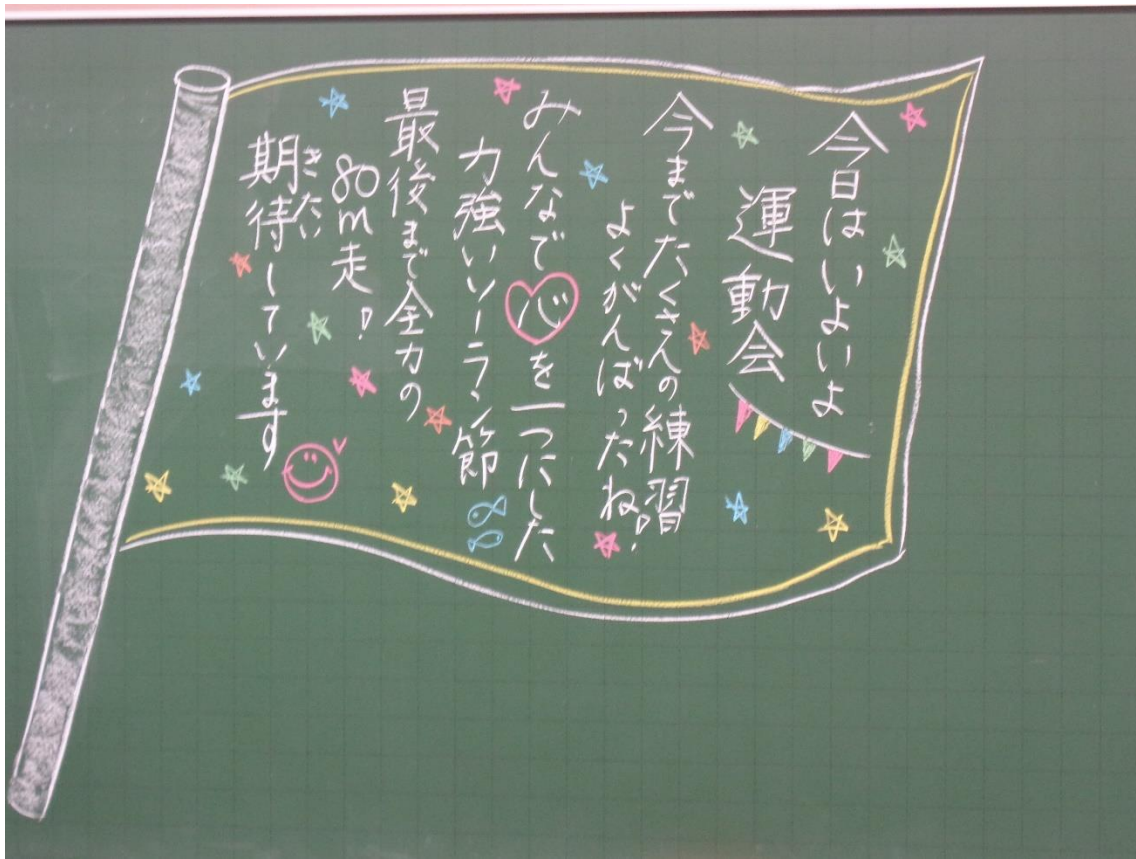 今日はいよいよ
運動会
今までたくさんの練習
よくがんばったね!
みんなで心を一つにした
力強いソーラン節
最後まで全力の
80m走!
期待しています
きたい